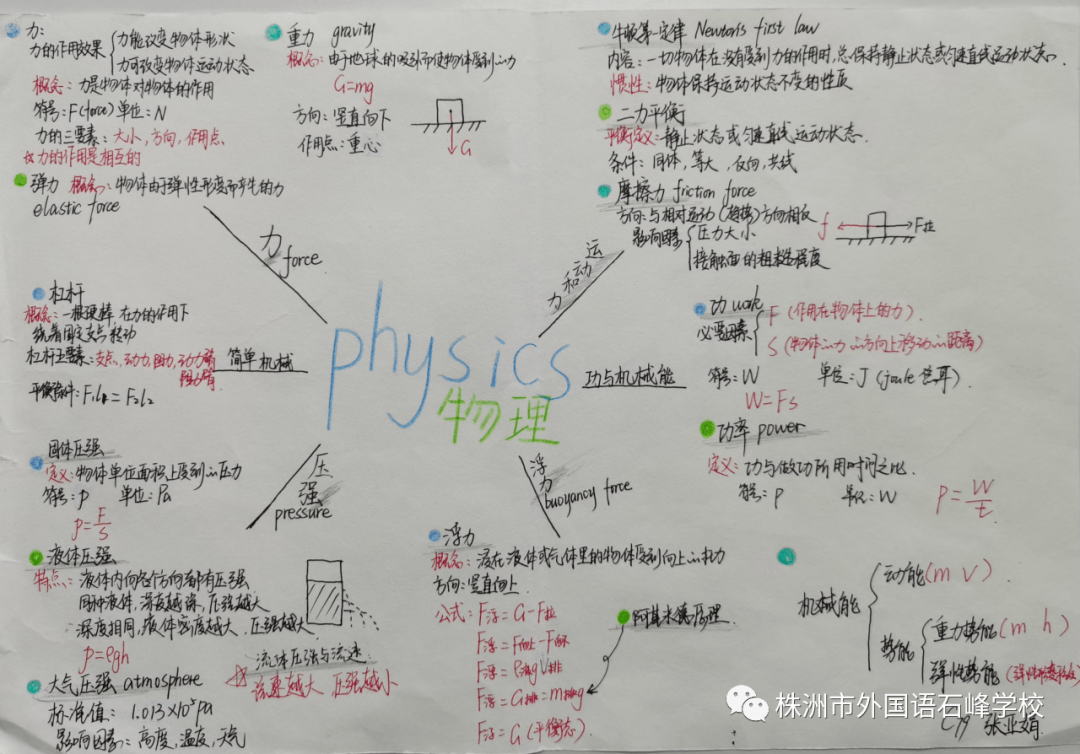 力:
力的作用效果 力能改变物体形状
力可改变物体运动状态
概念: 力是物体对物体的作用
符号:F(force) 单位:N
力的三要素:大小,方向,作用点
力的作用是相互的
弹力 概念:物体由于弹性形变而产生的力
elastic force
重力 gravity
概念:由于地球的吸引而使物体受到的力
G=mg
方向:竖直向下
作用点:重心
G
牛顿第一定律 Newton's first law
内容:一切物体在没有受到力的作用时,总保持静止状态或匀速直线运动状态.
惯性:物体保持运动状态不变的性质
二力平衡
平衡定义:静止状态或匀速直线运动状态.
条件:同体,等大,反向,共线
摩擦力 friction force
方向:与相对运动(趋势)方向相反
影响因素 压力大小
接触面的粗糙程度
f F拉
力 force
运动和力
杠杆
概念:一根硬棒 在力的作用下
绕着固定支点转动
杠杆五要素:支点,动力,阻力,动力臂
阻力臂
平衡条件:F₁L₁=F₂L₂
简单机械
physics
物理
功与机械能
功 work
必要因素 F (作用在物体上的力).
S (物体在力的方向上移动的距离)
符号:W 单位:J (joule 焦耳).
W=Fs
功率 power
定义:功与做功所用时间之比.
符号:P 单位:W
P=W/t
固体压强
定义:物体单位面积上受到的压力
符号:p 单位:Pa
p=F/S
压强 pressure
液体压强
特点:液体内向各个方向都有压强
同种液体,深度越深,压强越大
深度相同,液体密度越大,压强越大
p=ρgh
大气压强 atmosphere
标准值: 1.013×10⁵Pa
影响因素:高度,温度,天气
流体压强与流速:
流速越大 压强越小
浮力 buoyancy force
浮力
概念:浸在液体或气体里的物体受到向上的力
方向:竖直向上
公式:F浮=G-F拉
F浮=F向上-F向下
F浮=ρ液gV排
F浮=G排=m排g
F浮=G(平衡态).
阿基米德原理
机械能
动能(m v).
势能
重力势能(m h)
弹性势能
C19 张亚娟
株洲市外国语石峰学校